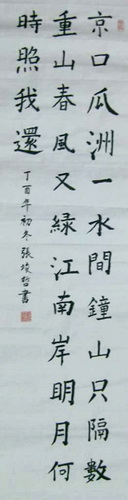 京口瓜洲一水間鐘山只隔數
重山春風又綠江南岸明月何
時照我還
丁酉年初冬張埈哲書